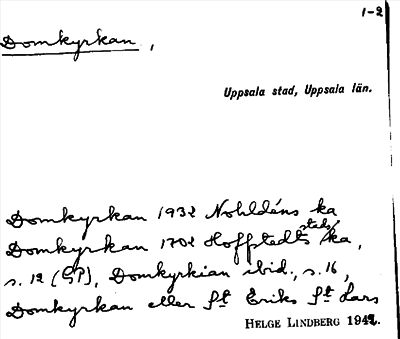 1-2
Domkyrkan,
Uppsala stad, Uppsala län.
Domkyrkan 1932 Nohldéns ka
stads
Domkyrkan 1702 Hoffstedts ka,
s. 12 (GP), Domkyrkian ibid., s. 16,
Domkyrkan eller St Eriks St Lars
HELGE LINDBERG 1942.